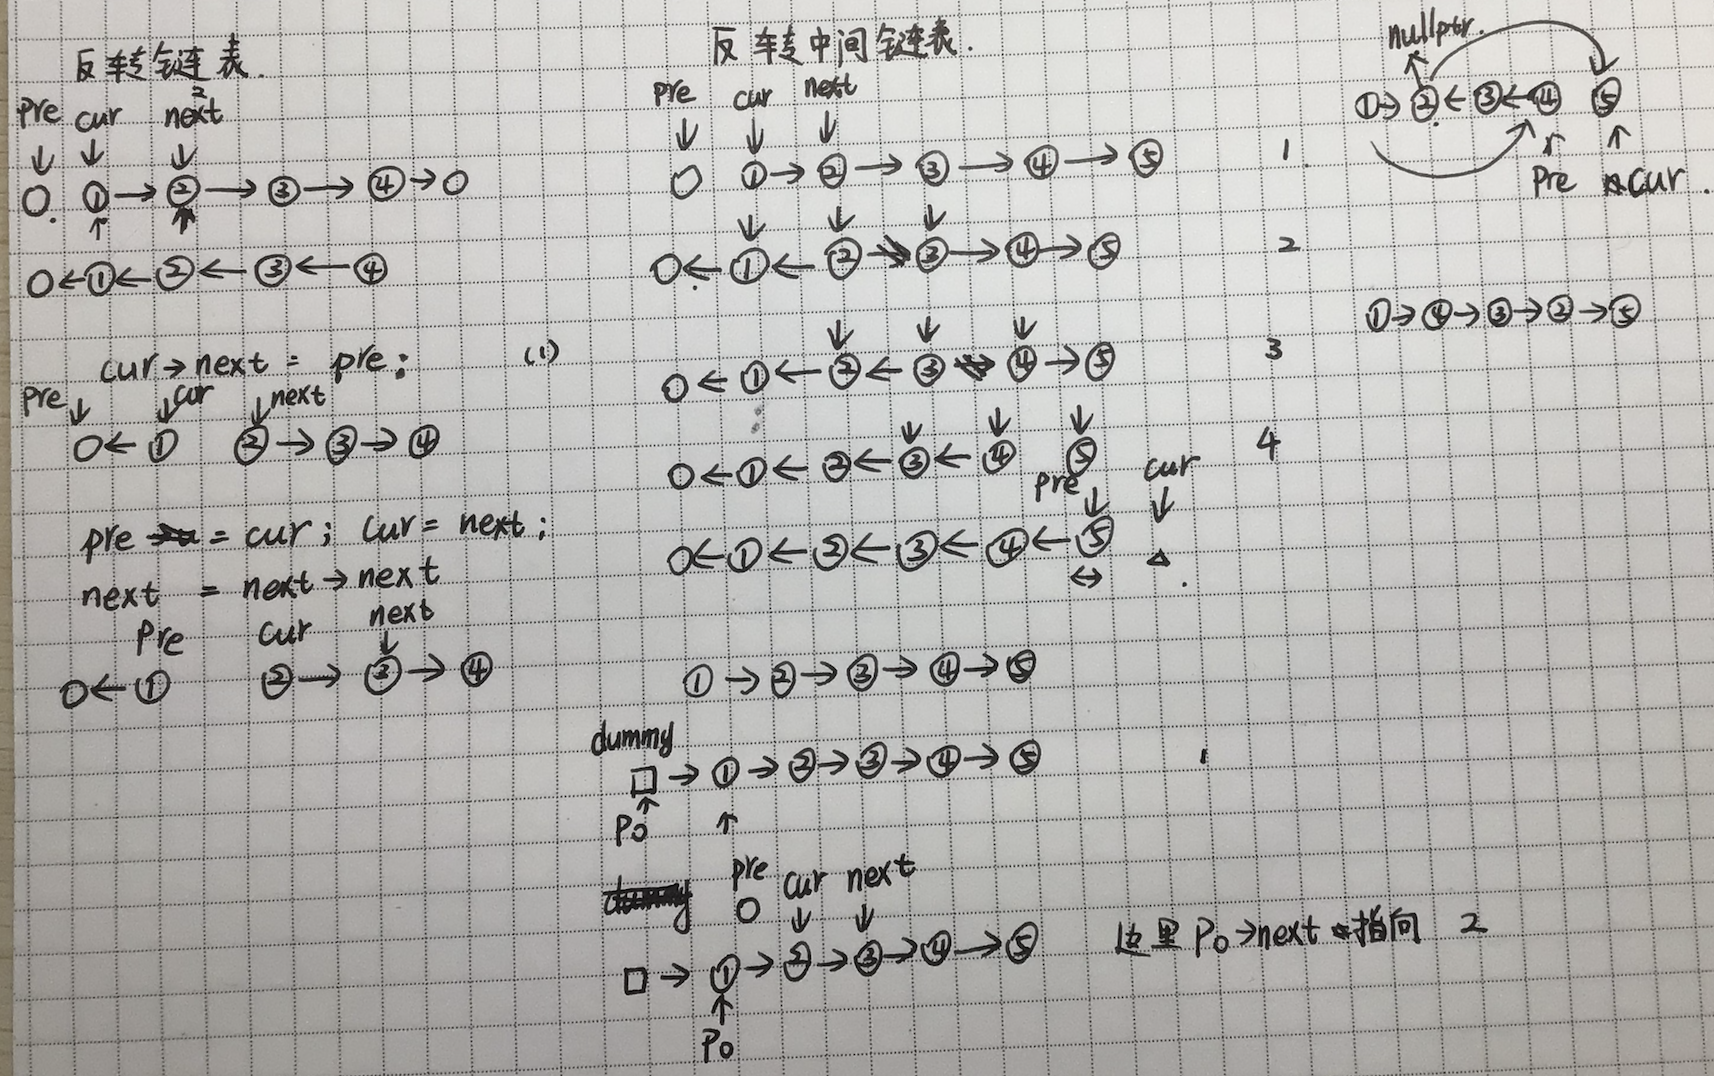 反转链表.
pre cur next
2
○ ① → ② → ③ → ④ → ○
○ ← ① ← ② ← ③ ← ④
cur → next = pre;
(1)
pre cur next
○ ← ① ② → ③ → ④
pre = cur; cur = next;
next = next → next
pre cur next
○ ← ① ② → ③ → ④
反转中间链表.
pre cur next
○ ① → ② → ③ → ④ → ⑤ 1.
○ ← ① ← ② → ③ → ④ → ⑤ 2
○ ← ① ← ② ← ③ ④ → ⑤ 3
○ ← ① ← ② ← ③ ← ④ ⑤ 4
pre cur
○ ← ① ← ② ← ③ ← ④ ← ⑤
① → ② → ③ → ④ → ⑤
dummy
□ → ① → ② → ③ → ④ → ⑤ 1
P0
pre cur next
○
□ → ① → ② → ③ → ④ → ⑤
这里 P0→next 指向 2
P0
nullptr.
① → ② ← ③ ← ④ ⑤
pre cur.
① → ④ → ③ → ② → ⑤